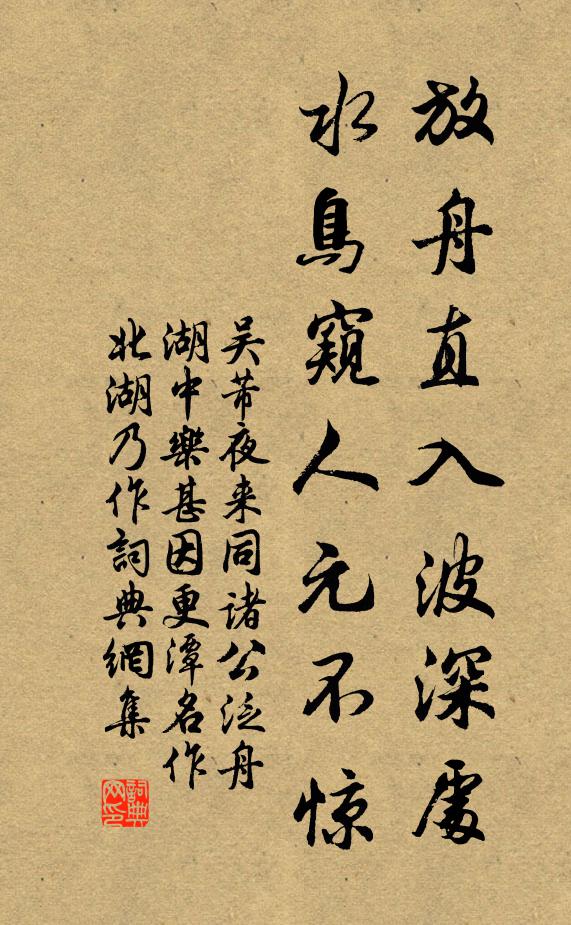 放舟直入波深處
水鳥窺人元不惊
吴芾夜来同諸公泛舟
湖中樂甚因更潭名作
北湖乃作詞典網集
詞典网印